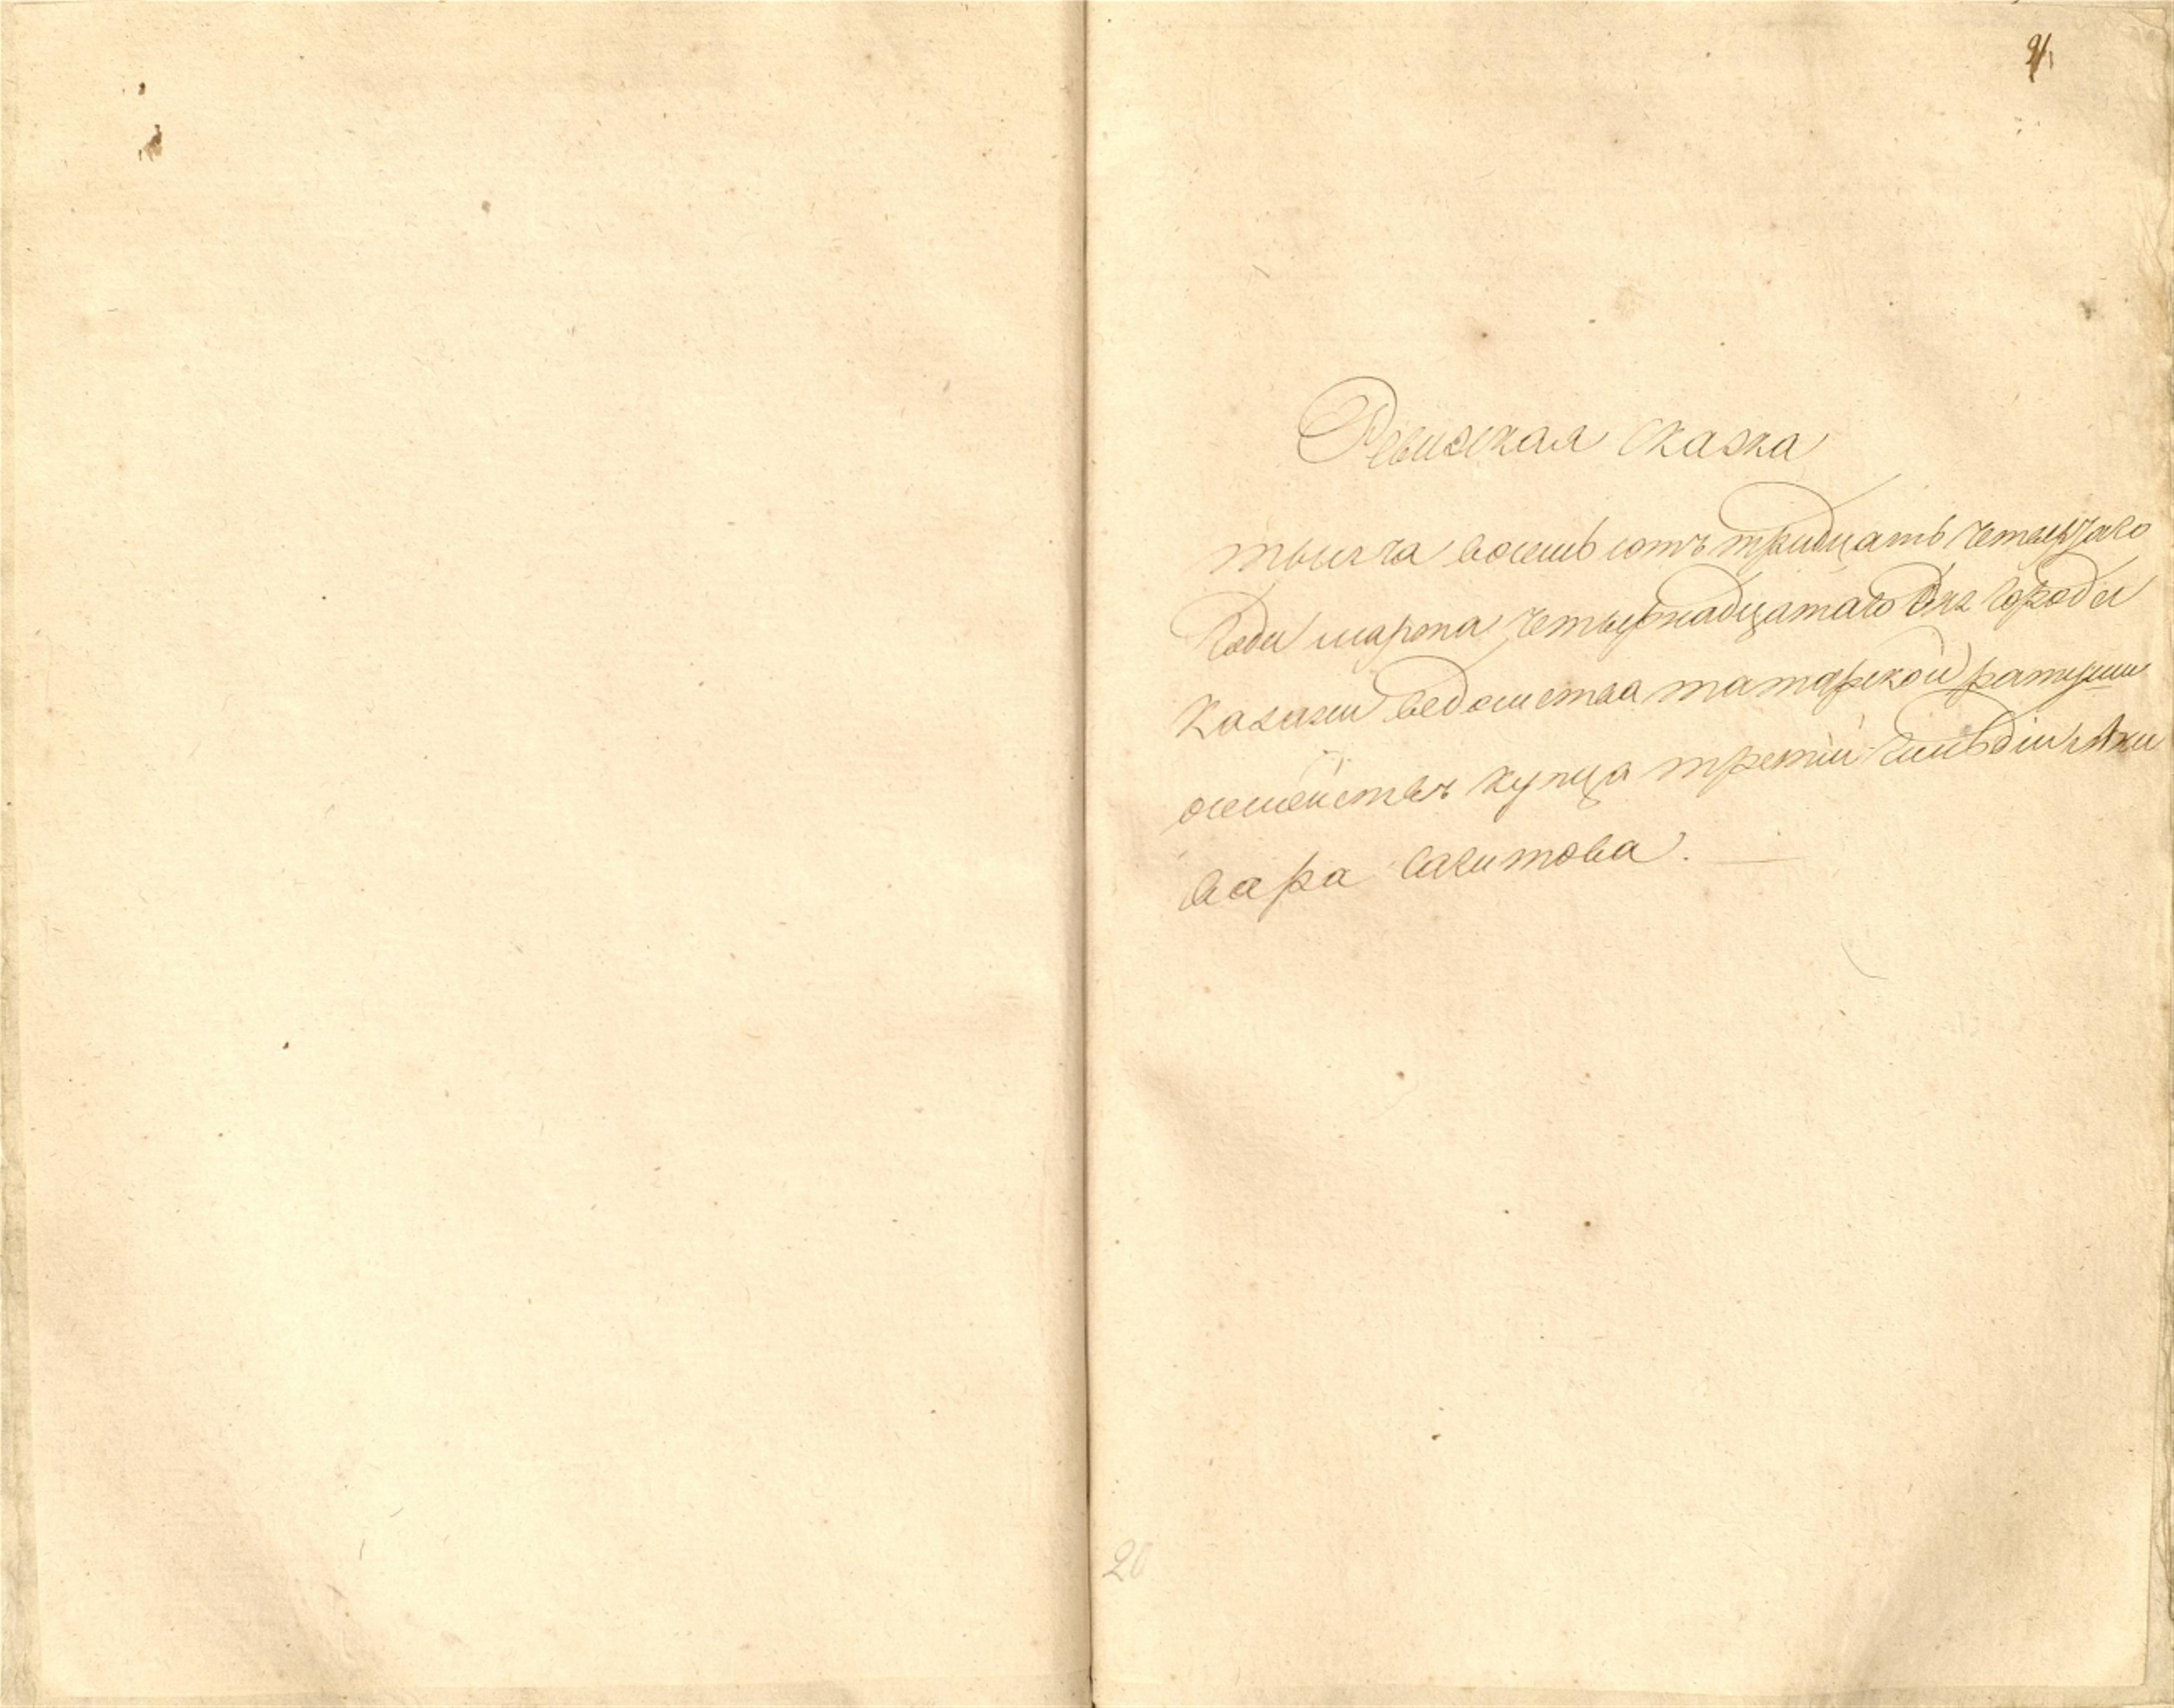 Ревизская сказка
тысяча восемь сотъ тридцать четвертаго
года марта четырнадцатаго дня города
Казани ведомства татарской ратуши
о семействе купца третий гильдии
вара Сагитова.
20